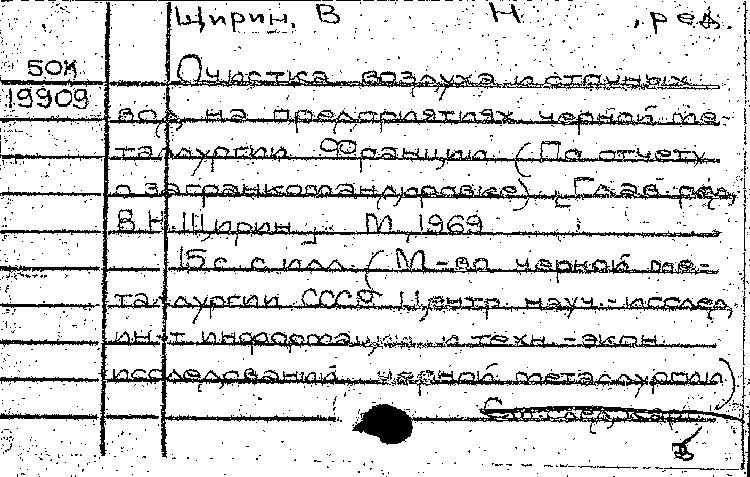 Щирин, В Н , ред.
50К Очистка воздуха и сточных
19909 вод на предприятиях черной ме-
таллургии Франции (По отчету
о загранкомандировке). [Глав. ред.
В.Н. Щирин]. М, 1969
15 с. с илл. (М-во черной ме-
таллургии СССР Центр. науч.-исслед
ин-т информации и техн.-экон.
исследований черной металлургии)